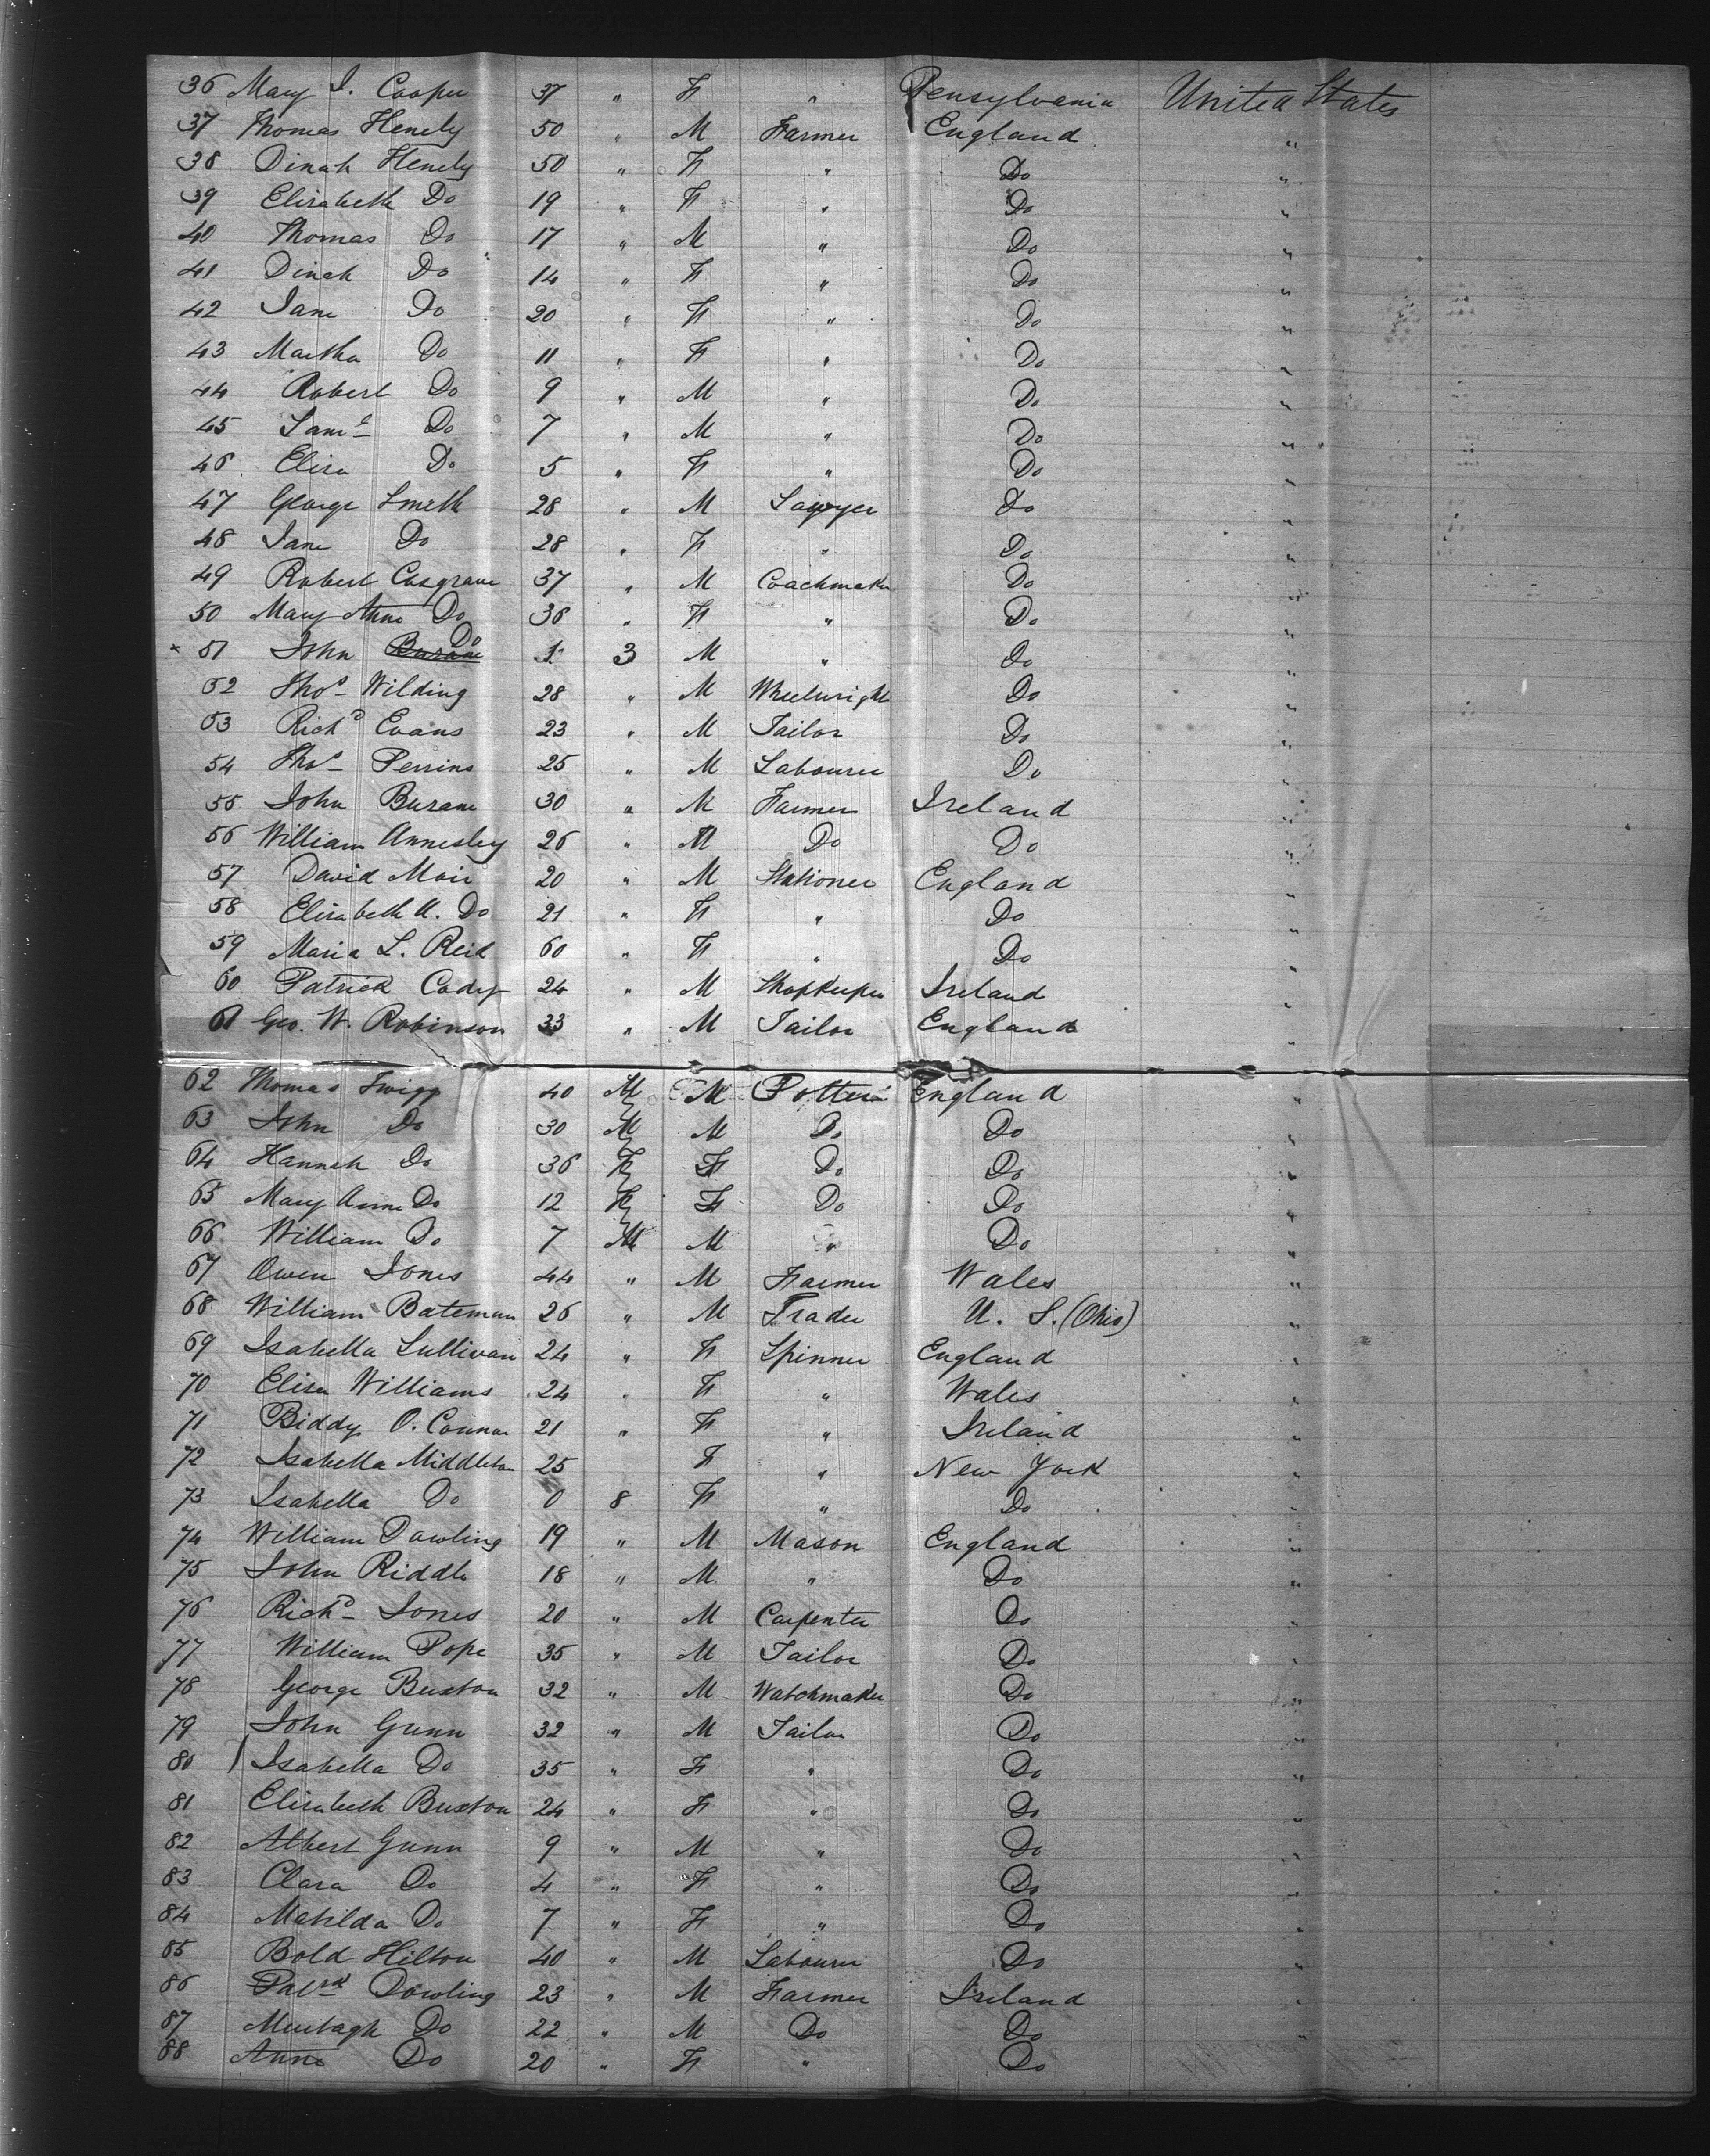 36 Mary I. Cooper 37 " F " Pensylvania United States
37 Thomas Henely 50 " M Farmer England "
38 Dinah Henely 50 " F " Do "
39 Elizabeth Do 19 " F " Do "
40 Thomas Do 17 " M " Do "
41 Dinah Do 14 " F " Do "
42 Jane Do 20 " F " Do "
43 Martha Do 11 " F " Do "
44 Robert Do 9 " M " Do "
45 Saml Do 7 " M " Do "
46 Eliza Do 5 " F " Do "
47 George Smith 28 " M Sawyer Do "
48 Jane Do 28 " F " Do "
49 Robert Cosgrave 37 " M Coachmaker Do "
50 Mary Anne Do 36 " F " Do "
x 51 John Burane Do 1 3 M " Do "
52 Thos Wilding 28 " M Wheelwright Do "
53 Richd Evans 23 " M Tailor Do "
54 Thos Perrins 25 " M Labourer Do "
55 John Burane 30 " M Farmer Ireland "
56 William Annesley 26 " M Do Do "
57 David Moir 20 " M Stationer England "
58 Elizabeth A. Do 21 " F " Do "
59 Maria L. Reid 60 " F " Do "
60 Patrick Cody 24 " M Shopkeeper Ireland "
61 Geo. W. Robinson 33 " M Tailor England "
62 Thomas Twigg 40 M M Potter England "
63 John Do 30 M M Do Do "
64 Hannah Do 36 F F Do Do "
65 Mary Anne Do 12 F F Do Do "
66 William Do 7 M M " Do "
67 Owen Jones 44 " M Farmer Wales "
68 William Bateman 26 " M Trader U. S. (Ohio) "
69 Isabella Sullivan 24 " F Spinner England "
70 Eliza Williams 24 " F " Wales "
71 Biddy O. Connor 21 " F " Ireland "
72 Isabella Middleton 25 F " New York "
73 Isabella Do 0 8 F " Do "
74 William Dowling 19 " M Mason England "
75 John Riddle 18 " M " Do "
76 Richd Jones 20 " M Carpenter Do "
77 William Pope 35 " M Tailor Do "
78 George Buxton 32 " M Watchmaker Do "
79 John Gunn 32 " M Tailor Do "
80 Isabella Do 35 " F " Do "
81 Elizabeth Buxton 24 " F " Do "
82 Albert Gunn 9 " M " Do "
83 Clara Do 4 " F " Do "
84 Matilda Do 7 " F " Do "
85 Bold Hilton 40 " M Labourer Do "
86 Patrk Dowling 23 " M Farmer Ireland "
87 Murtagh Do 22 " M Do Do "
88 Anne Do 20 " F " Do